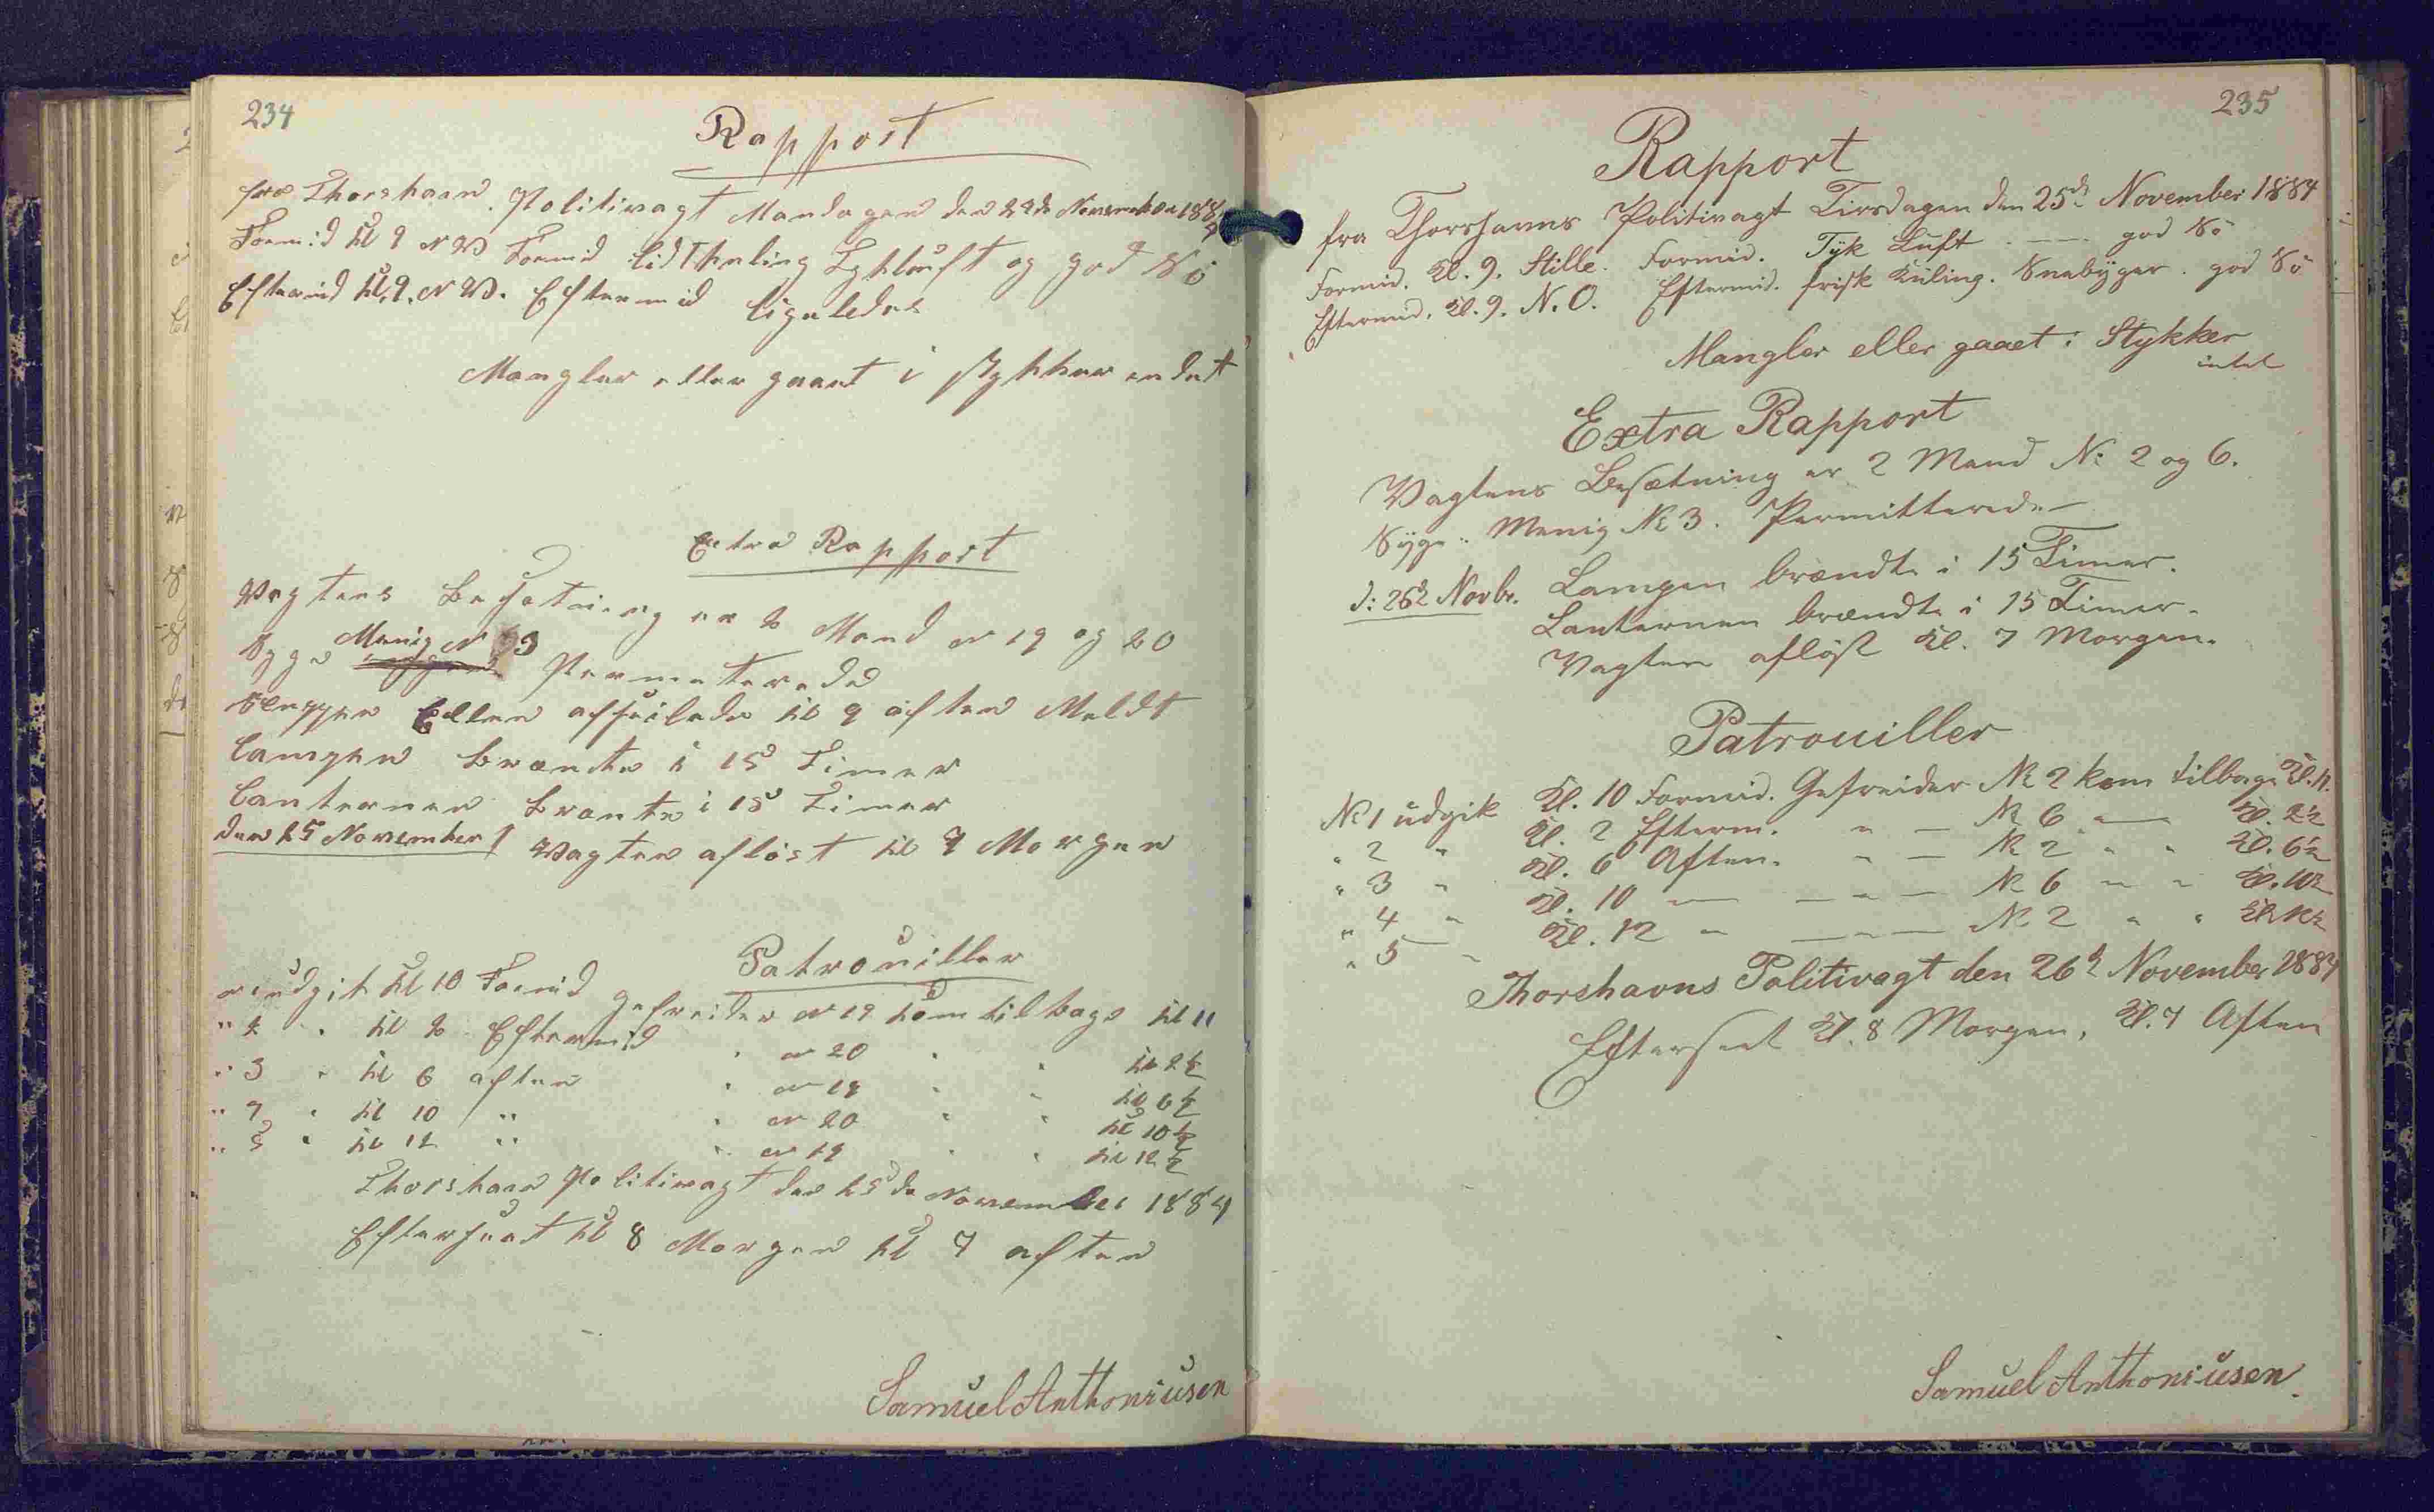 234
Rapport
fra Thorshavn Politivagt Mandagen den 24de November 1884
Formid Kl 9 N V Formid lidt Kuling Tykluft og god Sö
Eftermid Kl. 9. N V. Eftermid ligeledes
Mangler eller gaaet i stykker indet
Extra Rapport
Vagtens Besetning er 2 Mand N 19 og 20
Syge Menig N 3 Permeterede
Sluppen Ellen afseilede Kl 9 aften Meldt
Lampen brændte i 15 Timer
Lanternen brænte i 15 Timer
den 25 November Vagten aflöst Kl 7 Morgen
Patrouiller
N 1 udgik Kl 10 Formid gefreider N 19 kom tilbage Kl 11
" 2 " Kl 2 Eftermid " N 20 " " Kl 2½
" 3 " Kl 6 aften " N 19 " " Kl 6½
" 4 " Kl 10 " " N 20 " " Kl 10½
" 5 " Kl 12 " " N 19 " " Kl 12½
Thorshavn Politivagt den 25de November 1884
Efterseet Kl 8 Morgen Kl 7 aften
Samuel Anthoniusen
235
Rapport
fra Thorshavns Politivagt Tirsdagen den 25de November 1884
Formid. Kl. 9. Stille. Formid. Tyk Luft — god Sö
Eftermid. Kl. 9. N. O. Eftermid. frisk Kuling. Snebyger. god Sö
Mangler eller gaaet i Stykker
intet
Extra Rapport
Vagtens Besætning er 2 Mand No 2 og 6.
Syge: Menig No 3. Permitterede —
d: 26d Novbr. Lampen brændte i 15 Timer.
Lanternen brændte i 15 Timer.
Vagten aflöst Kl. 7 Morgen.
Patrouiller
No 1 udgik Kl. 10 Formid. Gefreider No 2 kom tilbage Kl. 11.
" 2 " Kl. 2 Efterm. " — No 6 — Kl. 2½
" 3 " Kl. 6 Aften. " — No 2 " " Kl. 6½
" 4 " Kl. 10 — — " — No 6 " " Kl. 10½
" 5 " Kl. 12 " — " — No 2 " " Kl. 12½
Thorshavns Politivagt den 26d November 1884
Efterseet Kl. 8 Morgen, Kl. 7 Aften
Samuel Anthoniusen.